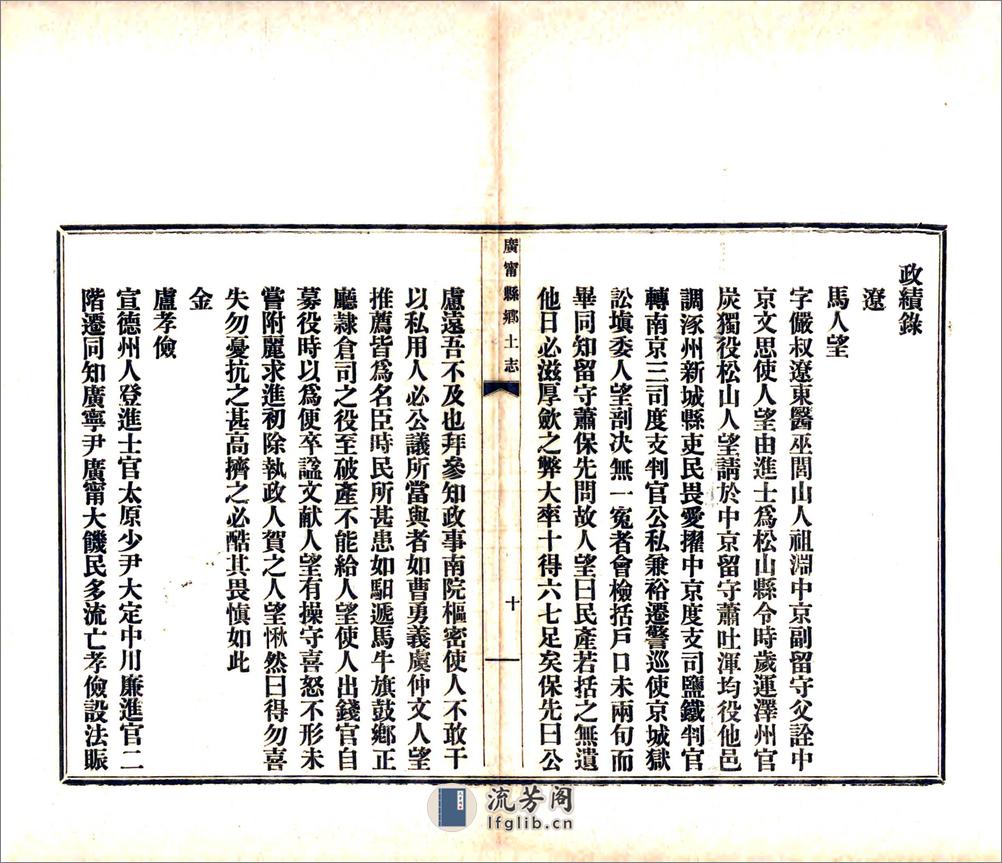 政績錄
遼
馬人望
字儼叔遼東醫巫閭山人祖淵中京副留守父詮中
京文思使人望由進士爲松山縣令時歲運澤州官
炭獨役松山人望請於中京留守蕭吐渾均役他邑
調涿州新城縣吏民畏愛擢中京度支司鹽鐵判官
轉南京三司度支判官公私兼裕遷警巡使京城獄
訟塡委人望剖決無一寃者會檢括戶口未兩旬而
畢同知留守蕭保先問故人望曰民產若括之無遺
他日必滋厚歛之弊大率十得六七足矣保先曰公
廣甯縣鄉土志
十
慮遠吾不及也拜參知政事南院樞密使人不敢干
以私用人必公議所當與者如曹勇義虞仲文人望
推薦皆爲名臣時民所甚患如馹遞馬牛旗鼓鄉正
廳隷倉司之役至破產不能給人望使人出錢官自
募役時以爲便卒諡文献人望有操守喜怒不形未
嘗附麗求進初除執政人賀之人望愀然曰得勿喜
失勿憂抗之甚高擠之必酷其畏慎如此
金
盧孝儉
宣德州人登進士官太原少尹大定中用廉進官二
階遷同知廣寧尹廣甯大饑民多流亡孝儉設法賑
流芳阁
lfglib.cn